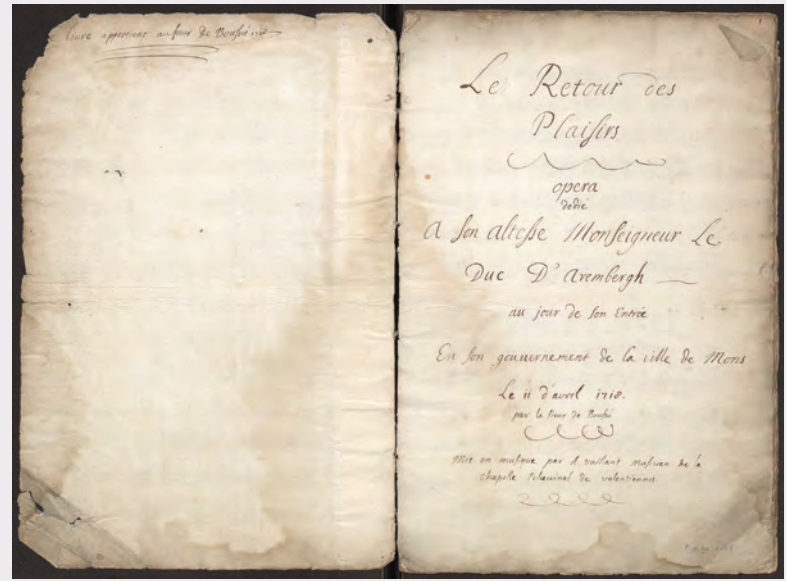 livre appartient au sieur de
Le Retour des
Plaisirs
opera
dedié
A son altesse Monseigneur Le
Duc D'Arembergh
au jour de son Entrée
En son gouvernement de la ville de Mons
Le 11 d'avril 1718.
par le sieur de
Mis en musique par A vaillant musicien de la
chapelle de valentiennes